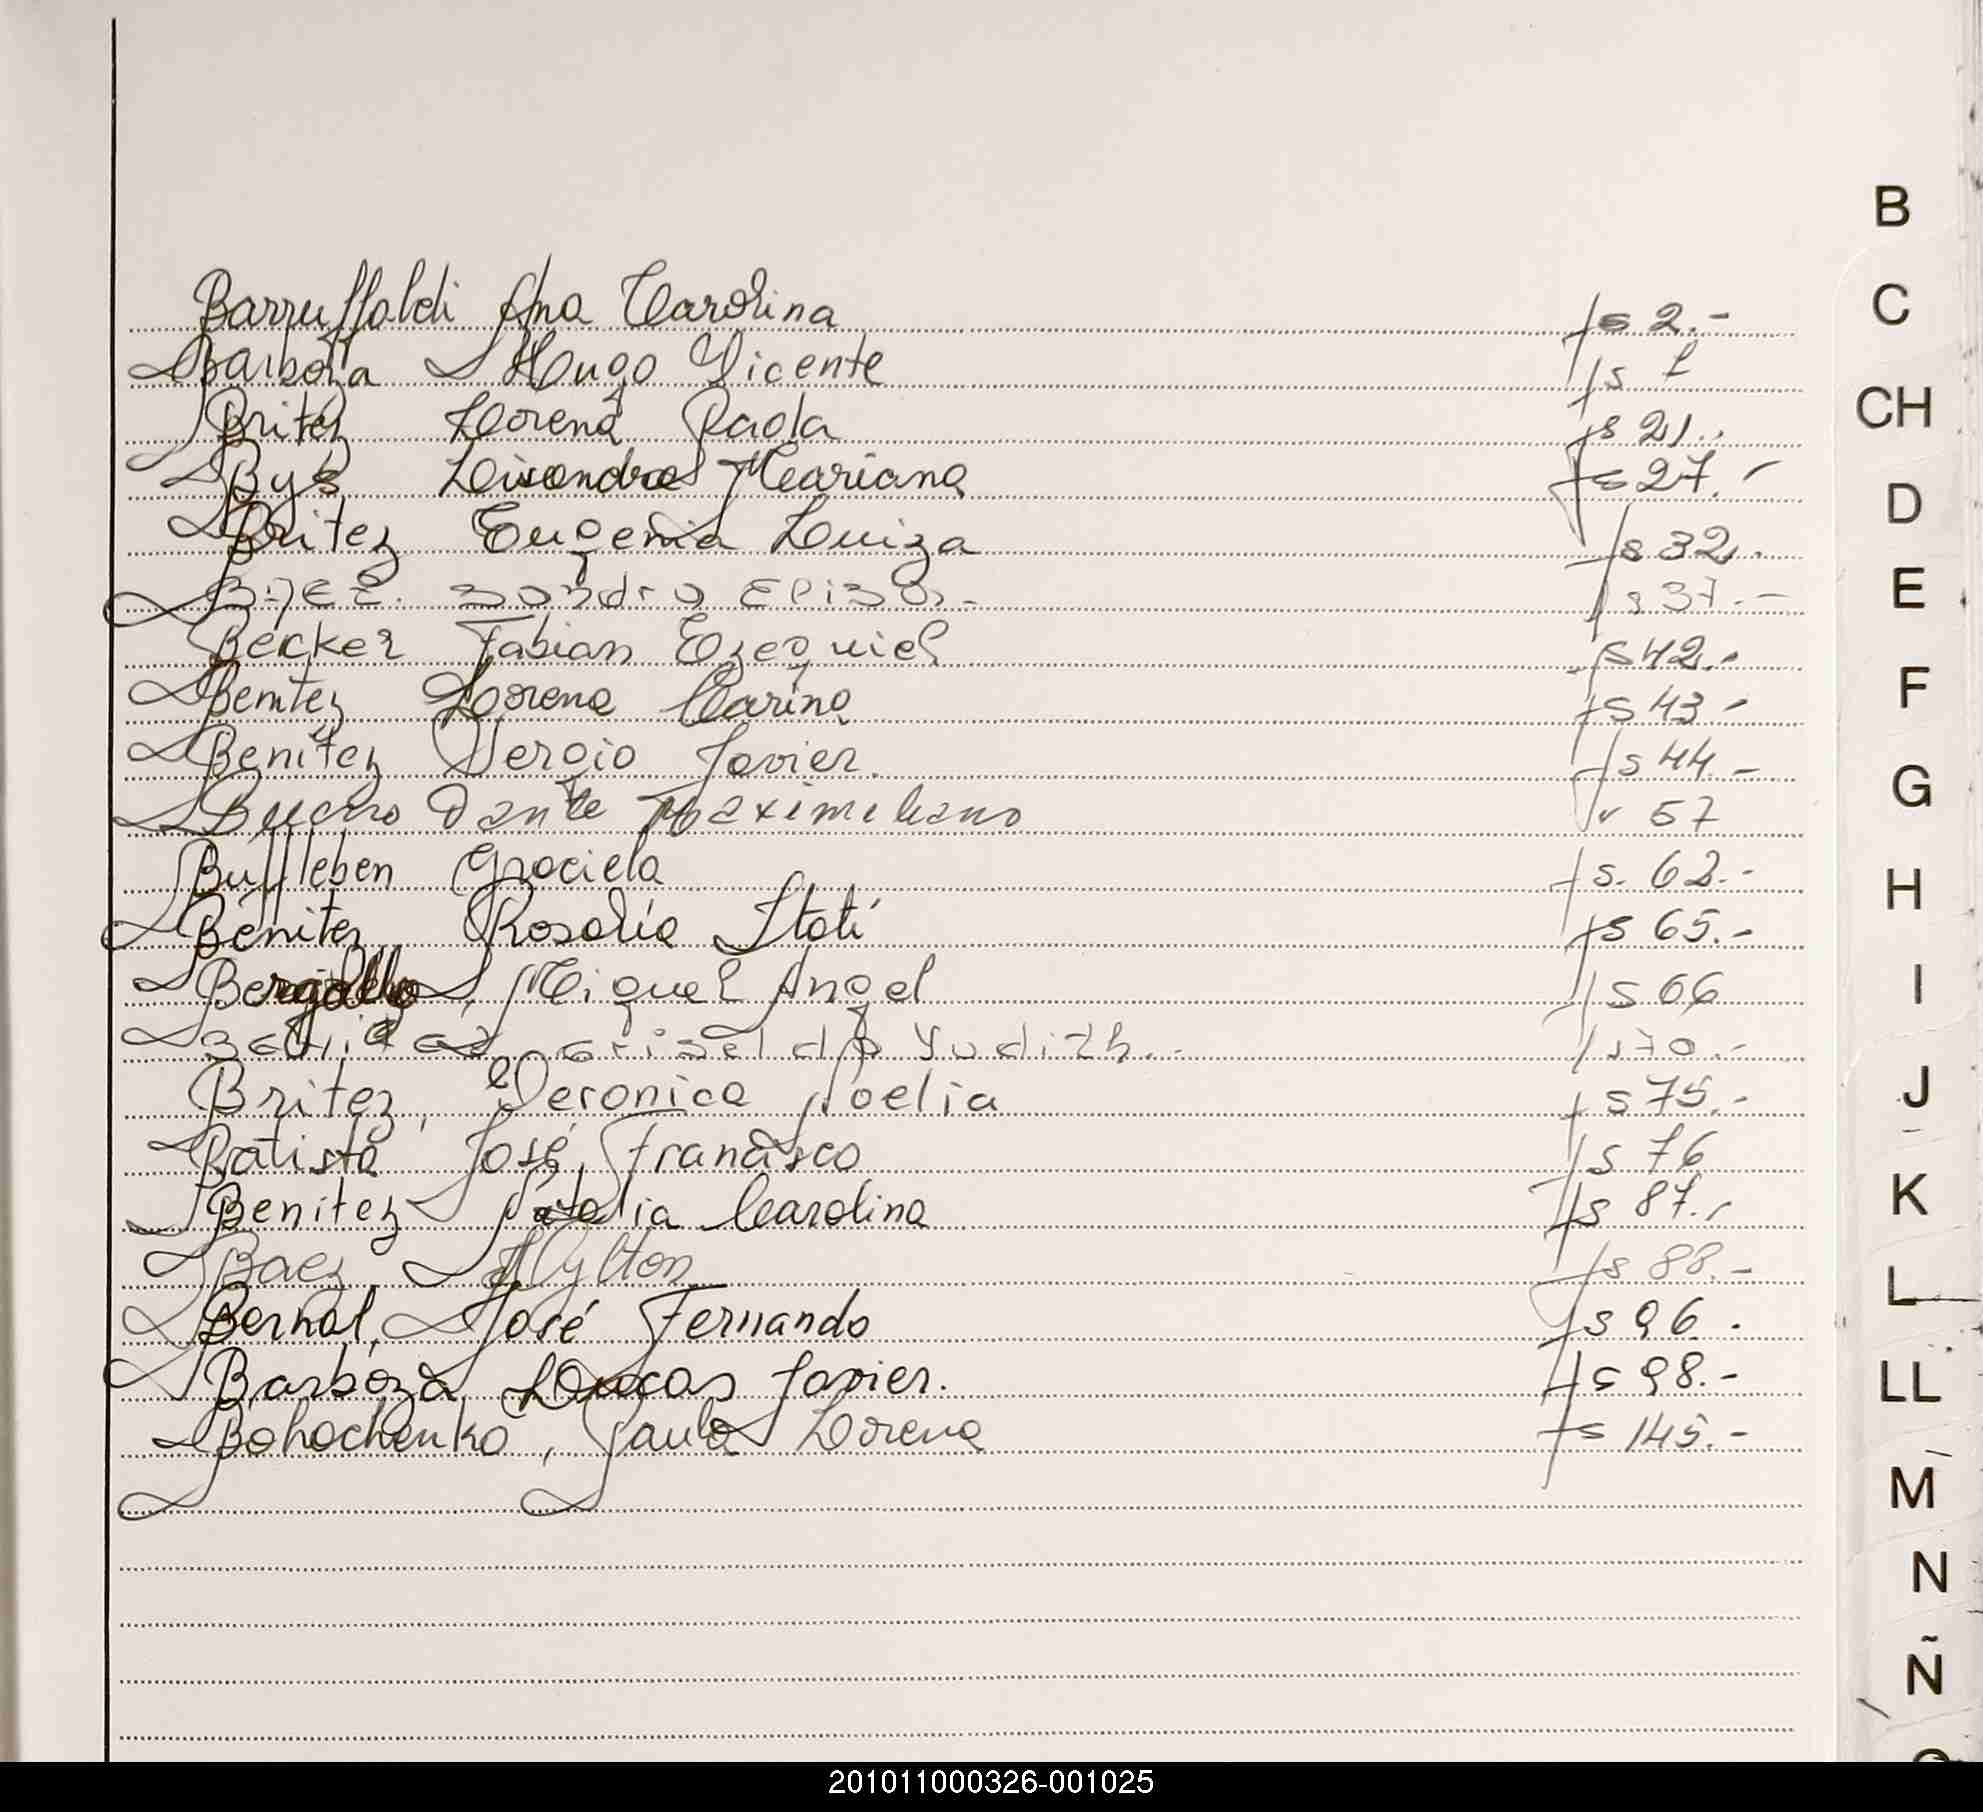 Barruffaldi Ana Carolina fs 2.-
Barboza Hugo Vicente fs
Britez Lorena Paola fs 21.-
Bys Lisandro Mariano fs 27.-
Britez Eugenia Luiza fs 32.-
Baez. Sandro fs 37.-
Becker Fabian Ezequiel fs 42.-
Benitez Lorena Carina fs 43.-
Benitez Sergio Javier. fs 44.-
Bueno Dante Maximiliano 57
Buffleben Graciela fs. 62.-
Benitez, Rosalía Itatí fs 65.-
Bergallo, Miguel Angel fs 66
Benitez, Griselda Yudith.- fs 70.-
Britez, Veronica Noelia fs 75.-
Batista José Francisco fs 76
Benitez Natalia Carolina fs 87.-
Baez, Hylton fs 88.-
Bernal, José Fernando fs 96.
Barboza Lucas Javier. fs 98.-
Bohochenko, Paula Lorena fs 145.-
B
C
CH
D
E
F
G
H
I
J
K
L
LL
M
N
Ñ
201011000326-001025